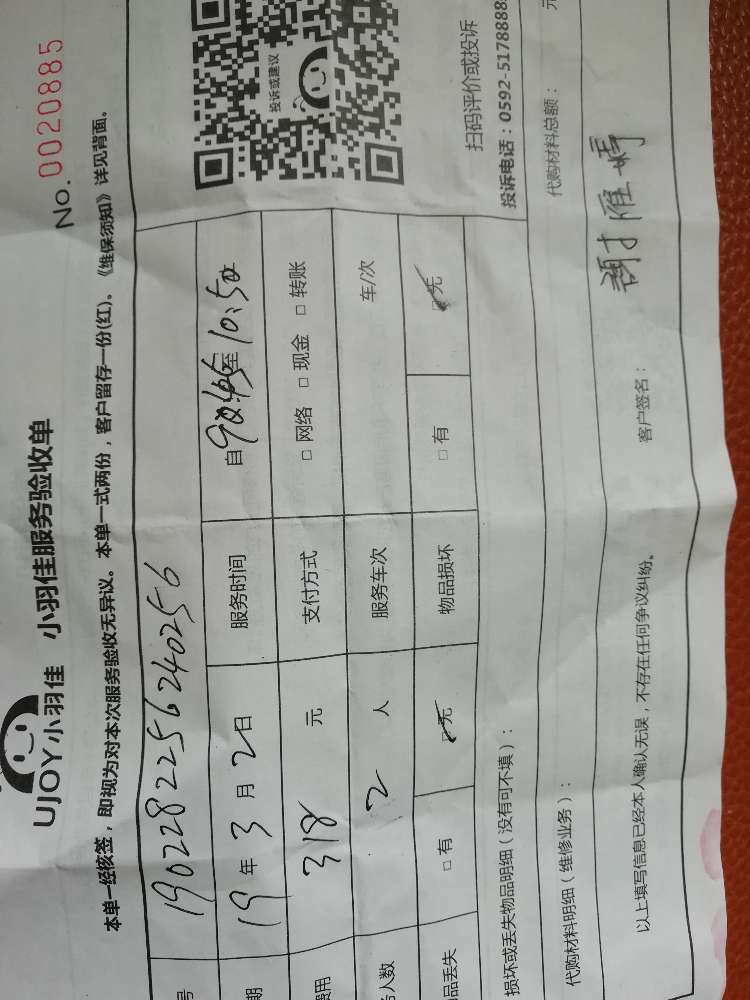 UJOY小羽佳 小羽佳服务验收单
No. 0020885
本单一经核签，即视为对本次服务验收无异议。本单一式两份，客户留存一份(红)。《维保须知》详见背面。
号 1902282256240256
期 19 年 3 月 2 日 服务时间 自 至 10:50
费用 318 元 支付方式 □ 网络 □ 现金 □ 转账
务人数 2 人 服务车次 车/次
品丢失 □ 有 □ 无 物品损坏 □ 有 □ 无
投诉或建议
扫码评价或投诉
投诉电话：0592-5178888
损坏或丢失物品明细（没有可不填）：
代购材料明细（维修业务）： 代购材料总额： 元
以上填写信息已经本人确认无误，不存在任何争议纠纷。 客户签名： 谢雁婷